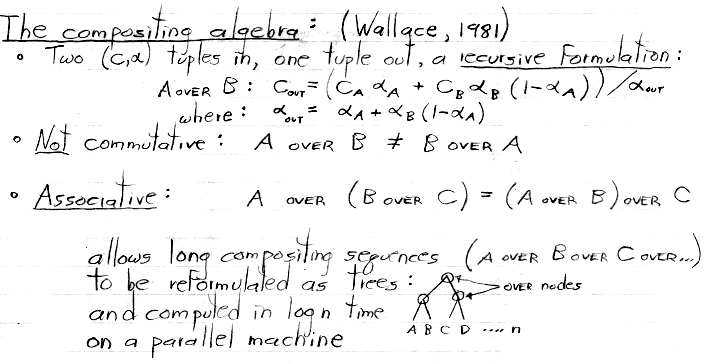 The compositing algebra: (Wallace, 1981)
• Two (C,α) tuples in, one tuple out, a recursive formulation:
A OVER B: C_OUT = (C_A α_A + C_B α_B (1-α_A)) / α_OUT
where: α_OUT = α_A + α_B (1-α_A)
• Not commutative: A OVER B ≠ B OVER A
• Associative: A OVER (B OVER C) = (A OVER B) OVER C
allows long compositing sequences (A OVER B OVER C OVER...)
to be reformulated as trees:
OVER nodes
and computed in log n time
A B C D .... n
on a parallel machine